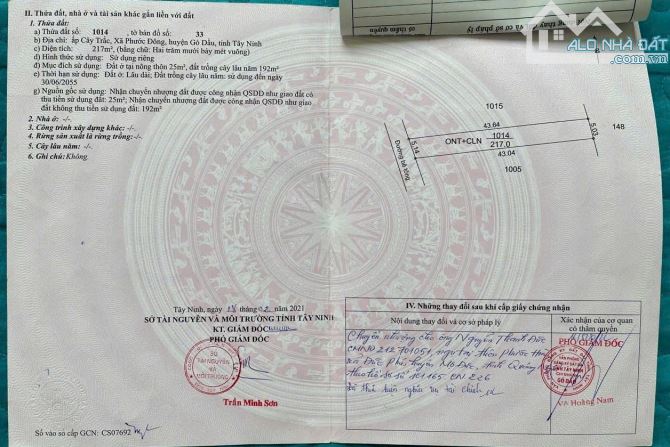 ALO NHÀ ĐẤT
II. Thửa đất, nhà ở và tài sản khác gắn liền với đất
1. Thửa đất:
a) Thửa đất số: 1014, tờ bản đồ số: 33
b) Địa chỉ: ấp Cây Trắc, Xã Phước Đông, huyện Gò Dầu, tỉnh Tây Ninh
c) Diện tích: 217m², (bằng chữ: Hai trăm mười bảy mét vuông)
d) Hình thức sử dụng: Sử dụng riêng
đ) Mục đích sử dụng: Đất ở tại nông thôn 25m², đất trồng cây lâu năm 192m²
e) Thời hạn sử dụng: Đất ở: Lâu dài; Đất trồng cây lâu năm: sử dụng đến ngày
30/06/2055
g) Nguồn gốc sử dụng: Nhận chuyển nhượng đất được công nhận QSDĐ như giao đất có
thu tiền sử dụng đất: 25m²; Nhận chuyển nhượng đất được công nhận QSDĐ như giao
đất không thu tiền sử dụng đất: 192m²
2. Nhà ở: -/-
3. Công trình xây dựng khác: -/-
4. Rừng sản xuất là rừng trồng: -/-
5. Cây lâu năm: -/-
6. Ghi chú: Không.
1015
43.64
148
5.14
ONT+CLN
1014
217.0
5.03
43.04
1005
Đường bê tông
Tây Ninh, ngày 18 tháng 02 năm 2021
SỞ TÀI NGUYÊN VÀ MÔI TRƯỜNG TỈNH TÂY NINH
KT. GIÁM ĐỐC
PHÓ GIÁM ĐỐC
SỞ
TÀI NGUYÊN
VÀ
MÔI TRƯỜNG
Trần Minh Sơn
Số vào sổ cấp GCN: CS07692
IV. Những thay đổi sau khi cấp giấy chứng nhận
Nội dung thay đổi và cơ sở pháp lý
Xác nhận của cơ quan
có thẩm quyền
Chuyển nhượng cho ông Nguyễn Thanh Đức
CMND 212701051, ngụ tại thôn Phước
xã Đức Phú, huyện Mộ Đức, tỉnh Quảng
theo hồ sơ số 161165 CN 206
Đã thực hiện nghĩa vụ tài chính
PHÓ GIÁM ĐỐC
Võ Hoàng Nam